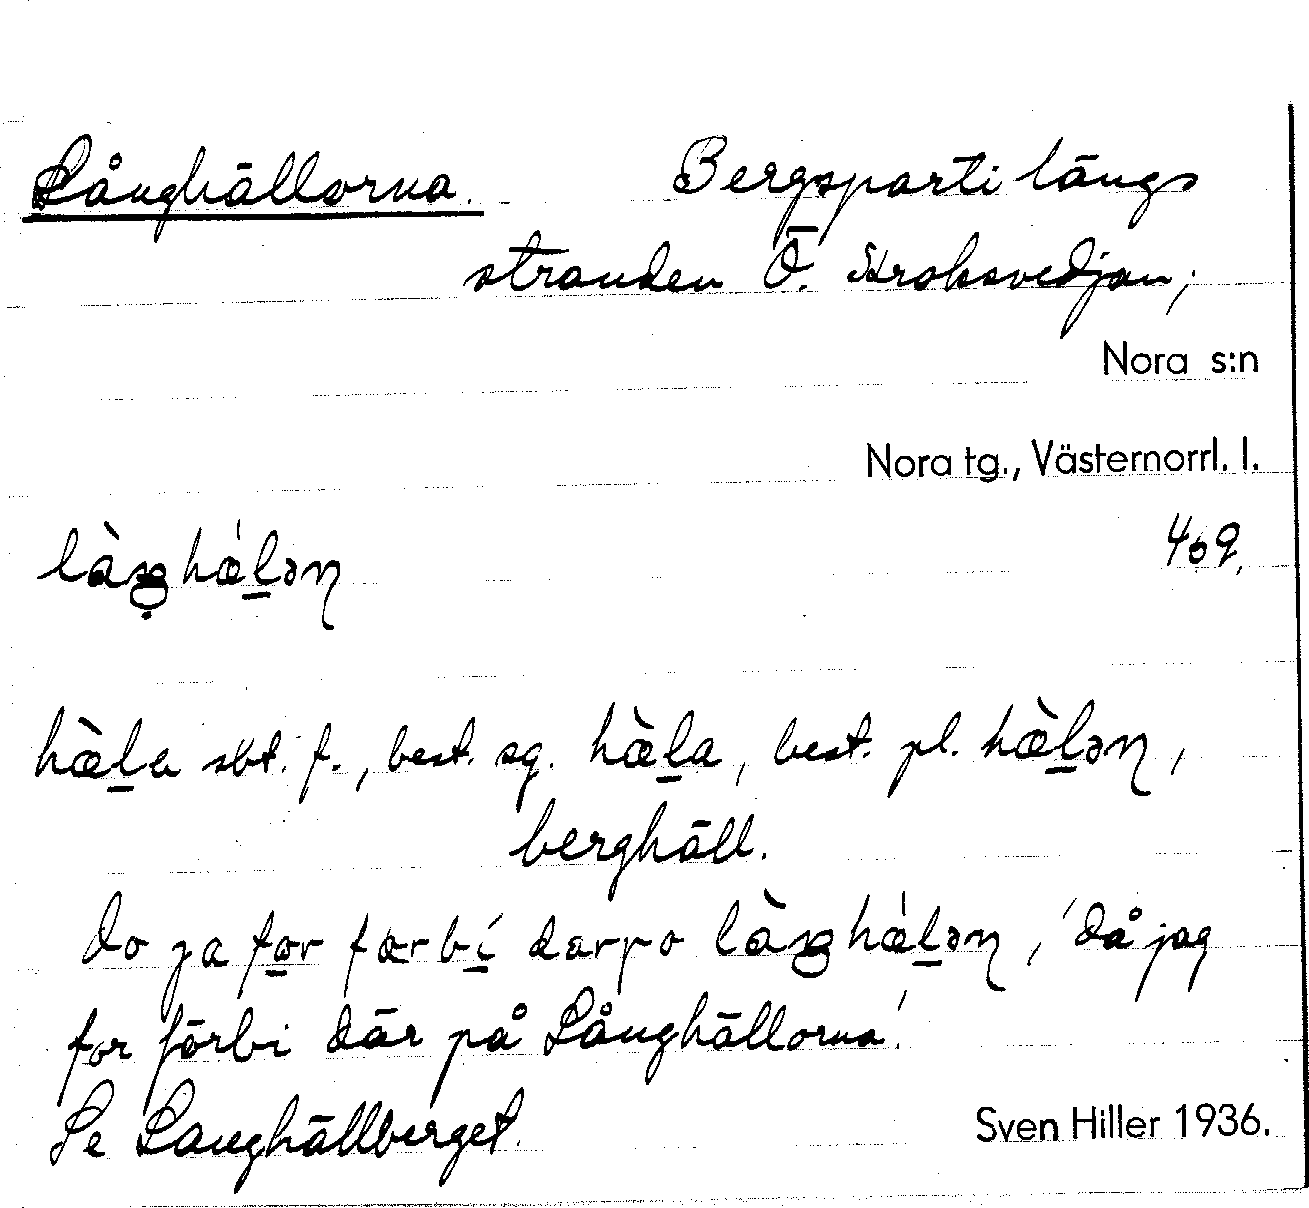 Långhällorna. Bergsparti längs
stranden Ö. Kroksvedjan;
Nora s:n
Nora tg., Västernorrl. l.
469.
hæ̀l̠a sbt. f., best. sg. hæ̀l̠a, best. pl. hæ̀l̠əɳ,
berghäll.
'då jag
for förbi där på Långhällorna'.
Se Långhällberget.
Sven Hiller 1936.